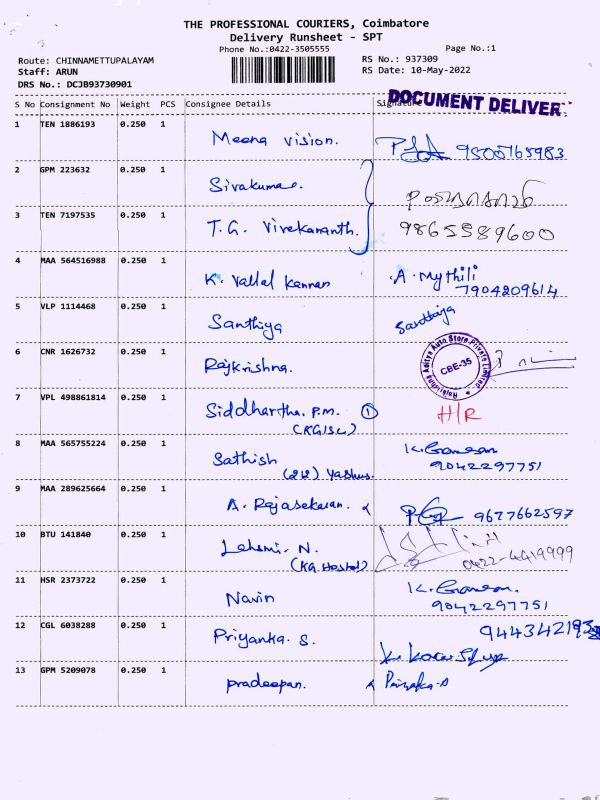 THE PROFESSIONAL COURIERS, Coimbatore
Delivery Runsheet - SPT
Phone No.:0422-3505555
Page No.:1
Route: CHINNAMETTUPALAYAM
RS No.: 937309
Staff: ARUN
RS Date: 10-May-2022
DRS No.: DCJB93730901
DOCUMENT DELIVER
S No Consignment No Weight PCS Consignee Details Signature
1 TEN 1886193 0.250 1 Meena Vision. 9500765983
2 GPM 223632 0.250 1 Sivakumar.
3 TEN 7197535 0.250 1 T.G. Vivekananth. 9865589600
4 MAA 564516988 0.250 1 K. Vallal Kannan A. Mythili
7904209614
5 VLP 1114468 0.250 1 Santhiya Santhiya
6 CNR 1626732 0.250 1 Rajkrishna.
Rajkrishna Aditya Auto Store Private Limited
CBE-35
7 VPL 498861814 0.250 1 Siddhartha. P.M. 1 H/R
(KGISL)
8 MAA 565755224 0.250 1 Sathish K. Ganesan
9042297751
9 MAA 289625664 0.250 1 A. Rajasekaran. 9677662597
10 BTU 141840 0.250 1 N. 0422-4419999
(KG. Hostel)
11 HSR 2373722 0.250 1 Navin K. Ganesan.
9042297751
12 CGL 6038288 0.250 1 Priyanka. S.
13 GPM 5209078 0.250 1 pradeepan.